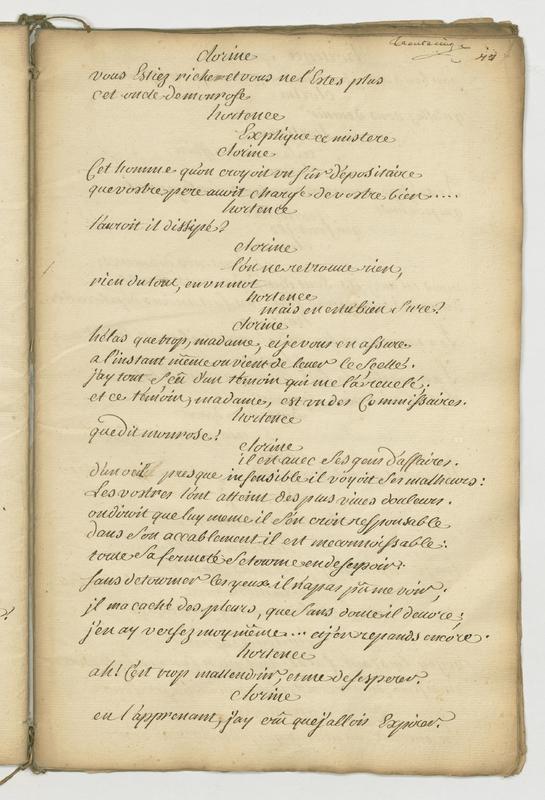 clorine
vous Estiez riche et vous ne l'Estes plus
cet oncle de monrose
hortence
Explique ce mistere
clorine
Cet homme qu'on croyoit un sûr dépositaire
que vostre pere avoit chargé de vostre bien ....
hortence
l'auroit il dissipé?
clorine
l'on ne retrouve rien,
rien du tout, en un mot
hortence
mais en es tu bien sure?
clorine
hélas que trop, madame, et je vous en assure
a l'instant même on vient de lever le scellé.
j'ay tout sçû d'un témoin qui me l'a revelé;
et ce témoin, madame, est un des Commissaires.
hortence
que dit monrose?
clorine
il est avec ses gens d'affaires.
d'un oeil presque insensible il voyoit ses malheurs:
Les vostres l'ont atteint des plus vives douleurs.
on diroit que luy meme il s'en croit responsable
dans son accablement il est meconnoissable:
toute sa fermeté se tourne en desespoir.
sans detourner les yeux il n'a pas pû me voir;
il m'a caché des pleurs, que sans doute il devore;
j'en ay versez moy même ... et j'en repands encore.
hortence
ah! C'est trop m'attendrir, et me desesperer.
clorine
en l'apprenant, j'ay crû que j'allois Expirer.